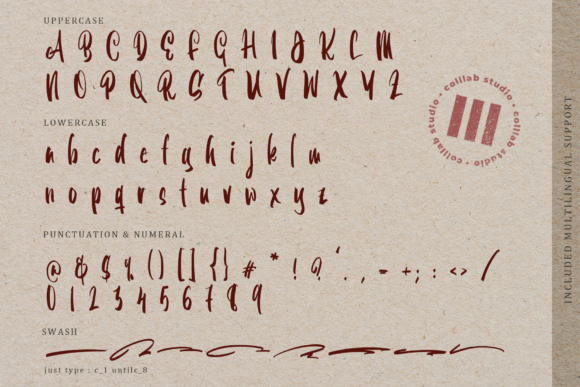 UPPERCASE
A B C D E F G H I J K L M
N O P Q R S T U V W X Y Z
LOWERCASE
a b c d e f g h i j k l m
n o p q r s t u v w x y z
PUNCTUATION & NUMERAL
@ & $ % ( ) [ ] { } # * ! ? ' . , = + ; : < > /
0 1 2 3 4 5 6 7 8 9
SWASH
just type : c_1 untilc_8
colilab studio • colilab studio • colilab studio •
INCLUDED MULTILINGUAL SUPPORT